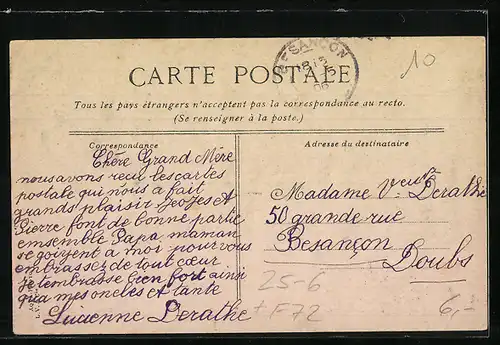 BESANÇON
10
CARTE POSTALE
Tous les pays étrangers n'acceptent pas la correspondance au recto.
(Se renseigner à la poste.)
Correspondance
Chère Grand Mère
nous avons recu les cartes
postale qui nous a fait
grands plaisir Georges et
Pierre font de bonne partie
emsemble Papa maman
se goijent a moi pour vous
embrasser de tout cœur
Je tembrasse bien fort ainsi
qua mes oncles et tante
Lucienne Derathe
Adresse du destinataire
Madame Veuve Derathe
50 grande rue
Besançon
Doubs
25-6
+ F72
6,-